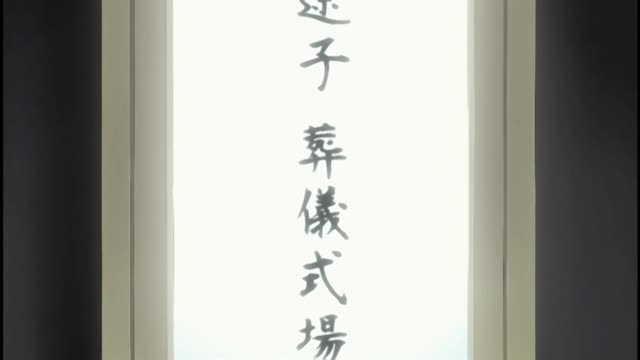 子 葬儀式場